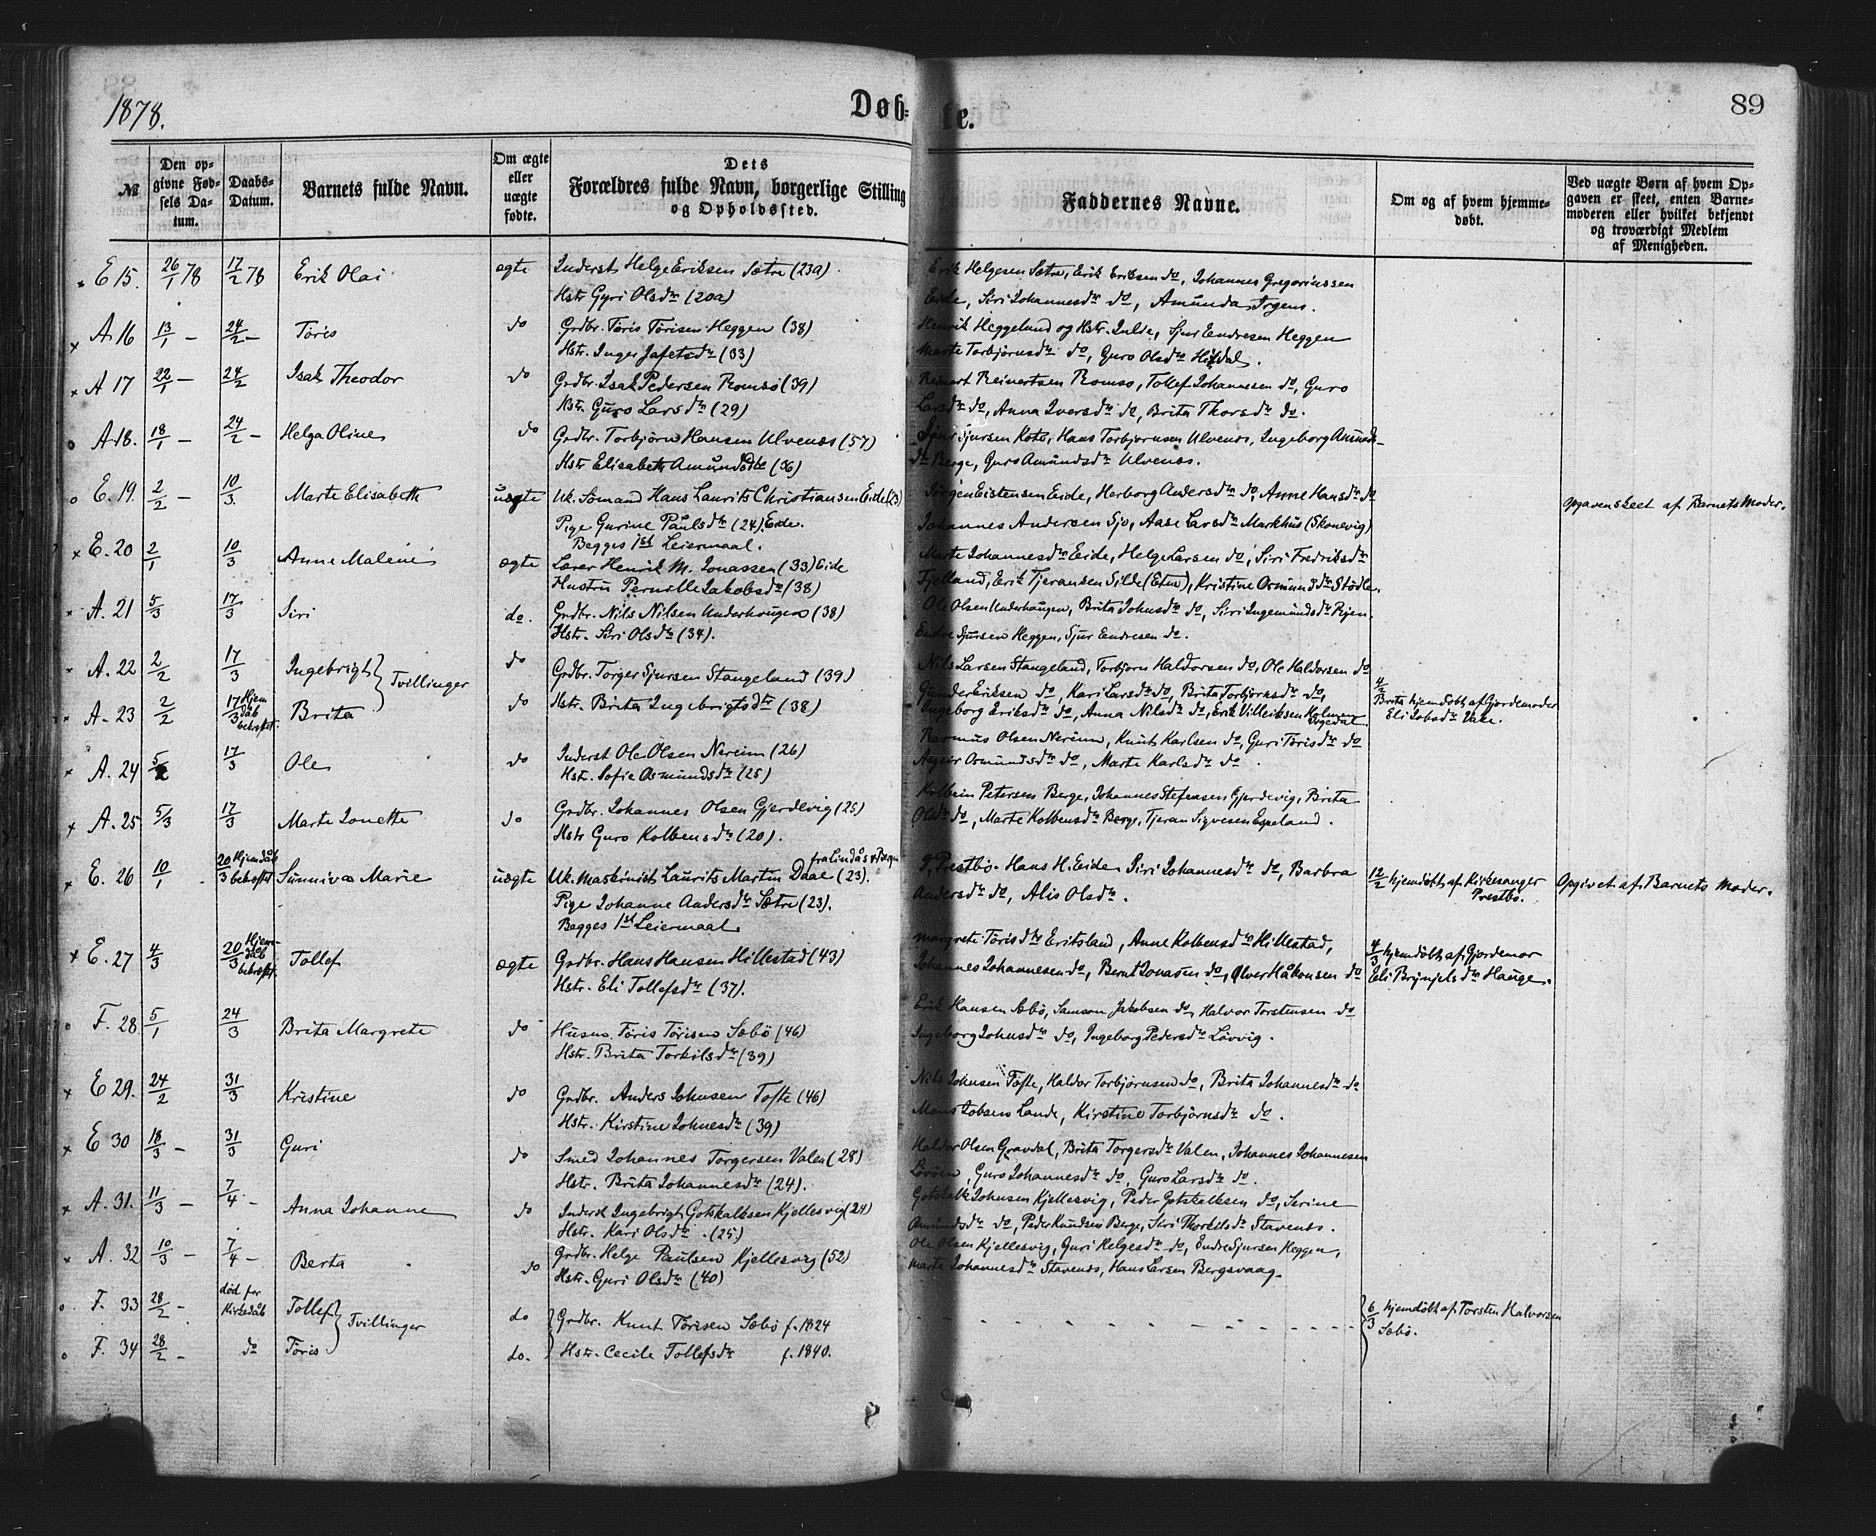 1878.
Døb-
te.
89
№
Den op-
givne Fød-
sels Da-
tum.
Daabs-
Datum.
Barnets fulde Navn.
Om ægte
eller
uægte
fødte.
Dets
Forældres fulde Navn, borgerlige Stilling
og Opholdssted.
Faddernes Navne.
Om og af hvem hjemme-
døbt.
Ved uægte Børn af hvem Op-
gaven er skeet, enten Barne-
moderen eller hvilket bekjendt
og troværdigt Medlem
af Menigheden.
E 15. 26/1 78 17/2 78 Erik Olai ægte Inderst Helge Eriksen Sætre (23a)
Hstr Gyri Olsdtr (20a)
Erik Helgesen Sætre, Erik Eriksen do, Johannes Gregoriussen
Eide, Siri Johannesdtr do, Amunda
A 16 13/1 - 24/2 - Tøris do Grdbr. Tøris Tørisen Heggen (38)
Hstr. Inger Jafetsdtr (33)
Henrik Heggeland og Hstr. Sjur Eendresen Heggen
Marte Torbjørnsdtr do, Guro Olsdtr
A 17 22/1 - 24/2 Isak Theodor do Grdbr. Isak Pedersen Romsø (39)
Hstr. Guro Larsdtr (29)
Reinert Reinertsen Romsø, Tollef Johannesen do, Guro
Larsdtr do, Anna Iversdtr do, Brita Thorsdtr do.
A 18. 18/1 - 24/2 - Helga Oline do Grdbr. Torbjørn Hansen Ulvenæs (57)
Hstr Elisabeth Amundsdtr (36)
Sjur Sjursen Hans Torbjørnsen Ulvenes, Ingeborg Amunds-
dtr Berge, Guro Amundsdtr Ulvenes.
E. 19. 2/2 - 10/3. Marte Elisabeth uægte Uk. Sømand Hans Laurits Christiansen Eide (23)
Pige Gurine Paulsdtr (24) Eide.
Begges 1st Leiermaal.
Jørgen Eistensen Eide, Herborg Andersdtr do, Anne Hansdtr do
Johannes Andersen Sjo, Aase Larsdtr Markhus (Skonevig)
Opgaven skeet af Barnets Moder.
E. 20 2/1 10/3 Anne Maline ægte Lærer Henrik M. Jonassen (33) Eide
Hustru Pernille Jakobsdtr (38)
Marte Johannesdtr Eide, Helge Larsen do, Siri Fredriksdtr
Fjelland, Erik Tjeransen Silde (Etne), Kristine Osmundsdtr Stødle.
A. 21 5/3 17/3 Siri do. Grdbr. Nils Nilsen Underhougen (38)
Hstr. Siri Olsdtr (34).
Ole Olsen Underhaugen, Brita Johnsdtr do, Siri Ingemundsdtr
Endre Sjursen Heggen, Sjur Eendresen do.
A. 22 2/2 17/3 Ingebrigt } Tvillinger do Grdbr. Torger Sjursen Stangeland (39)
Nils Larsen Stangeland, Torbjørn Haldorsen do, Ole Haldorsen do
A. 23 2/2 17/3 Hjem-
dåb
bekræftet. Brita do Hstr. Brita Ingebrigtsdtr (38)
Gunder Eriksen do, Kari Larsdtr do, Brita Torbjørnsdtr do,
Ingeborg Eriksdtr do, Anna Nilsdtr do, Erik Villeiksen
4/2
Brita hjemdøbt af Gjordemoder
Eli Jobsdtr Vake.
A. 24 5/2 17/3 Ole do Inderst Ole Olsen Nereim (26)
Hstr. Sofie Osmundsdtr (25)
Rasmus Olsen Nereim, Knut Karlsen do, Guri Tørisdtr do
Asgeir Osmundsdtr do, Marte Karlsdtr do.
A. 25 5/3 17/3 Marte Jonette do Grdbr. Johannes Olsen Gjerdevig (25)
Hstr Guro Kolbensdtr (20).
Kolbein Petersen Berge, Johannes Stefensen Gjerdevig, Brita
Olsdtr do, Marte Kolbensdtr Berge, Tjeran Sigvesen Espeland.
E. 26 10/1 20/3 Hjemdåb
bekræftet Sunniva Marie uægte Uk. Maskinist Laurits Martin Daae (23). fra Lindås v. Bergen
Pige Johanne Andersdtr Sætre (23).
Begges 1st Leiermaal.
Prestbø. Hans H. Eide Siri Johannesdtr do, Barbra
Andersdtr do, Alis Olsdtr.
12/2 hjemdøbt af Kirkesanger
Prestbø.
Opgivet af Barnets Moder.
E. 27 4/3 20/3 Hjem-
dåb
bekræftet. Tollef ægte Grdbr. Hans Hansen Hillestad (43)
Hstr. Eli Tollefsdtr (37).
Margrete Tørisdtr Eritsland, Anne Kolbensdtr Hillestad,
Johannes Johannesen do, Bernt Jonasen do, Olver Håkonsen do
4/3 hjemdøbt af Gjordemor
Eli Brynjelsdtr Hauge.
F. 28 5/1 24/3 Brita Margrete do Husm. Tøris Tørisen Sæbø (46)
Hstr. Brita Torkilsdtr (39)
Erik Hansen Sæbø, Samson Jakobsen do, Halvor Torstensen do
Ingeborg Johnsdtr do, Ingeborg Pedersdtr Løvvig.
E 29. 24/2 31/3 Kristine do Grdbr. Anders Johnsen Tofte (46)
Hstr. Kirstine Johnesdtr (39)
Nils Johnsen Tofte, Haldor Torbjørnsen do, Brita Johannesdtr do
Mons Jobsen Lande, Kirstine Torbjørnsdtr do.
E 30 18/3 - 31/3 Guri do Smed Johannes Torgersen Valen (28)
Hstr. Brita Johannesdtr (24).
Haldor Olsen Gravdal, Brita Torgersdtr Valen, Johannes Johannesen
Guro Johannesdtr do, Guro Larsdtr do.
A. 31. 11/3 - 7/4 - Anna Johanne do Inderst Ingebrigt Gotskalksen Kjellesvig (24)
Hstr. Kari Olsdtr. (25)
Gotskalk Johnsen Kjellesvig, Peder Gotskalksen do, Serine
Amundsdtr do, Peder Knudsen Berge, Siri Thorkelsdtr Stavenes.
A. 32 10/3 - 7/4 - Berta do Grdbr. Helge Paulsen Kjellesvig (52)
Hstr. Guri Olsdtr (40)
Ole Olsen Kjellesvig, Guri Helgesdtr do, Endre Sjursen Heggen,
Marte Johannesdtr Stavenes, Hans Larsen Bergsvaag.
F. 33 28/2 - død før
Kirkedåb Tollef } Tvillinger do Grdbr. Knut Tørisen Sæbø f. 1824
6/3 hjemdøbt af Torsten Halvorsen
Sæbø.
F. 34 28/2 - do Tøris do. Hstr. Cecile Tollefsdtr f. 1840.